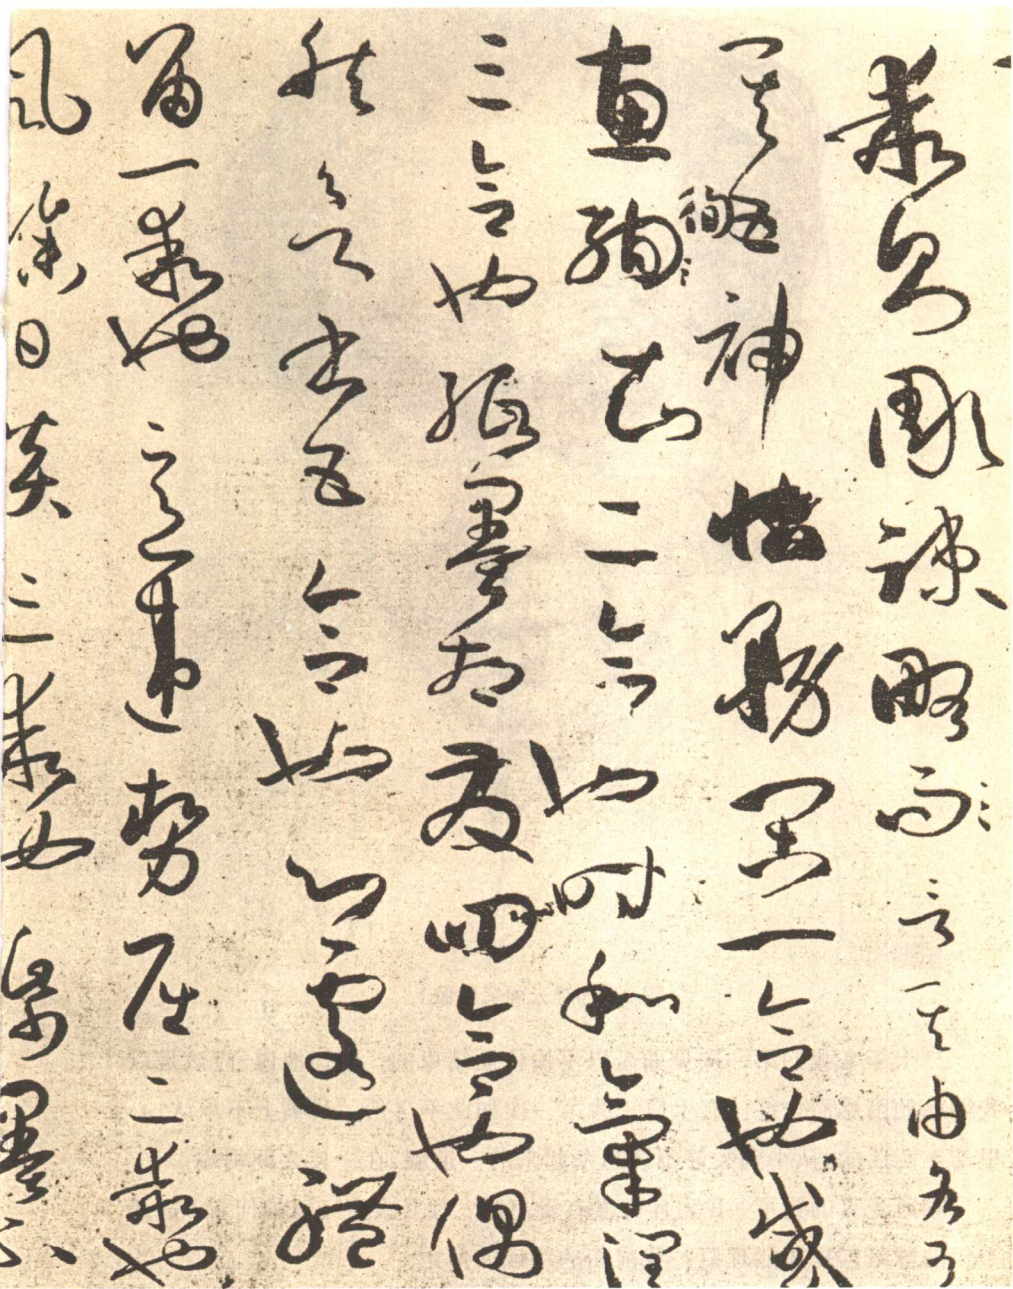 乖則彫疎略而言其由各有
其五神怡務閑一合也感
惠殉徇知二合也時和氣潤
三合也紙墨相發四合也偶
然欲書五合也心遽體
留一乖也意違勢屈二乖也
風燥日炎三乖也紙墨不